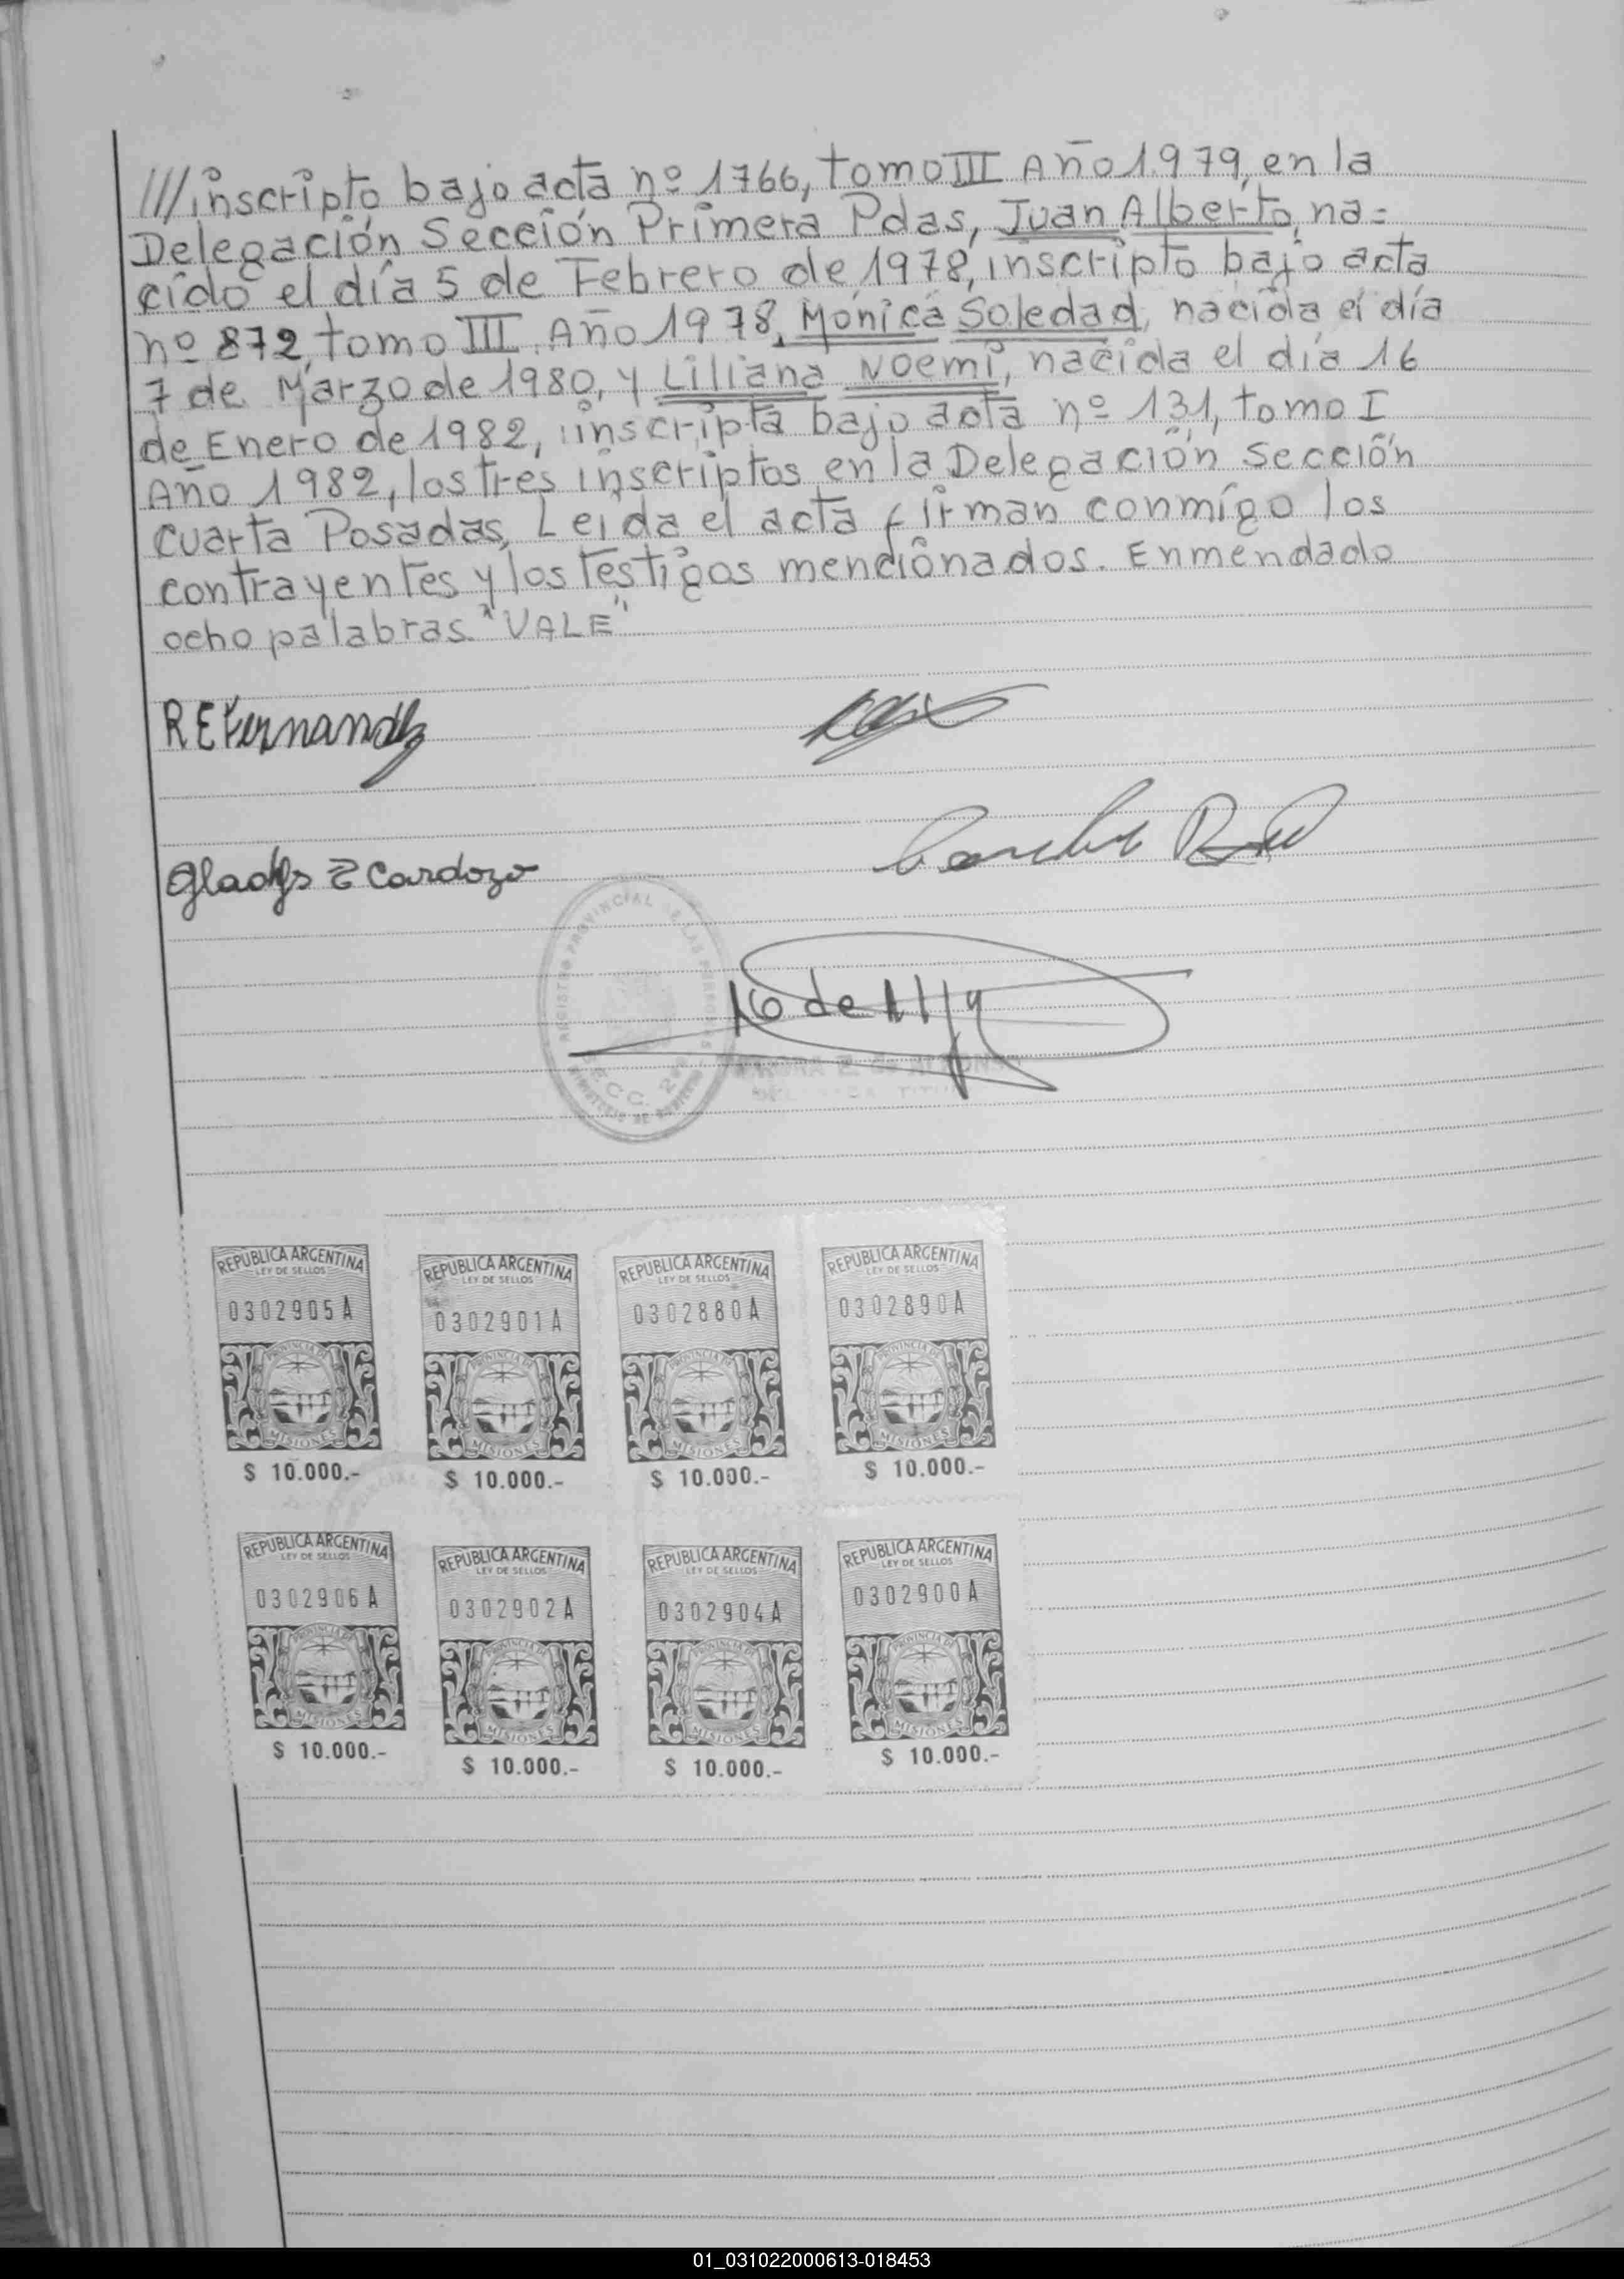 ///inscripto bajo acta nº 1766, tomo III Año 1979, en la
Delegación Sección Primera Pdas, Juan Alberto, na=
cido el día 5 de Febrero de 1978, inscripto bajo acta
nº 872 tomo III. Año 1978, Mónica Soledad, nacida el día
7 de Marzo de 1980, y Liliana Noemi, nacida el día 16
de Enero de 1982, inscripta bajo acta nº 131, tomo I
Año 1982, los tres inscriptos en la Delegación Sección
Cuarta Posadas, Leida el acta firman conmigo los
contrayentes y los testigos mencionados. Enmendado
ocho palabras "VALE"
R E Fernandez
Gladys E Cardozo
REGISTRO PROVINCIAL DE LAS PERSONAS
SECC. 2da
REPUBLICA ARGENTINA REPUBLICA ARGENTINA REPUBLICA ARGENTINA REPUBLICA ARGENTINA
LEY DE SELLOS LEY DE SELLOS LEY DE SELLOS LEY DE SELLOS
0302905A 0302901A 0302880A 0302890A
PROVINCIA DE PROVINCIA DE PROVINCIA DE PROVINCIA DE
MISIONES MISIONES MISIONES MISIONES
$ 10.000.- $ 10.000.- $ 10.000.- $ 10.000.-
REPUBLICA ARGENTINA REPUBLICA ARGENTINA REPUBLICA ARGENTINA REPUBLICA ARGENTINA
LEY DE SELLOS LEY DE SELLOS LEY DE SELLOS LEY DE SELLOS
0302906A 0302902A 0302904A 0302900A
PROVINCIA DE PROVINCIA DE PROVINCIA DE PROVINCIA DE
MISIONES MISIONES MISIONES MISIONES
$ 10.000.- $ 10.000.- $ 10.000.- $ 10.000.-
01_031022000613-018453